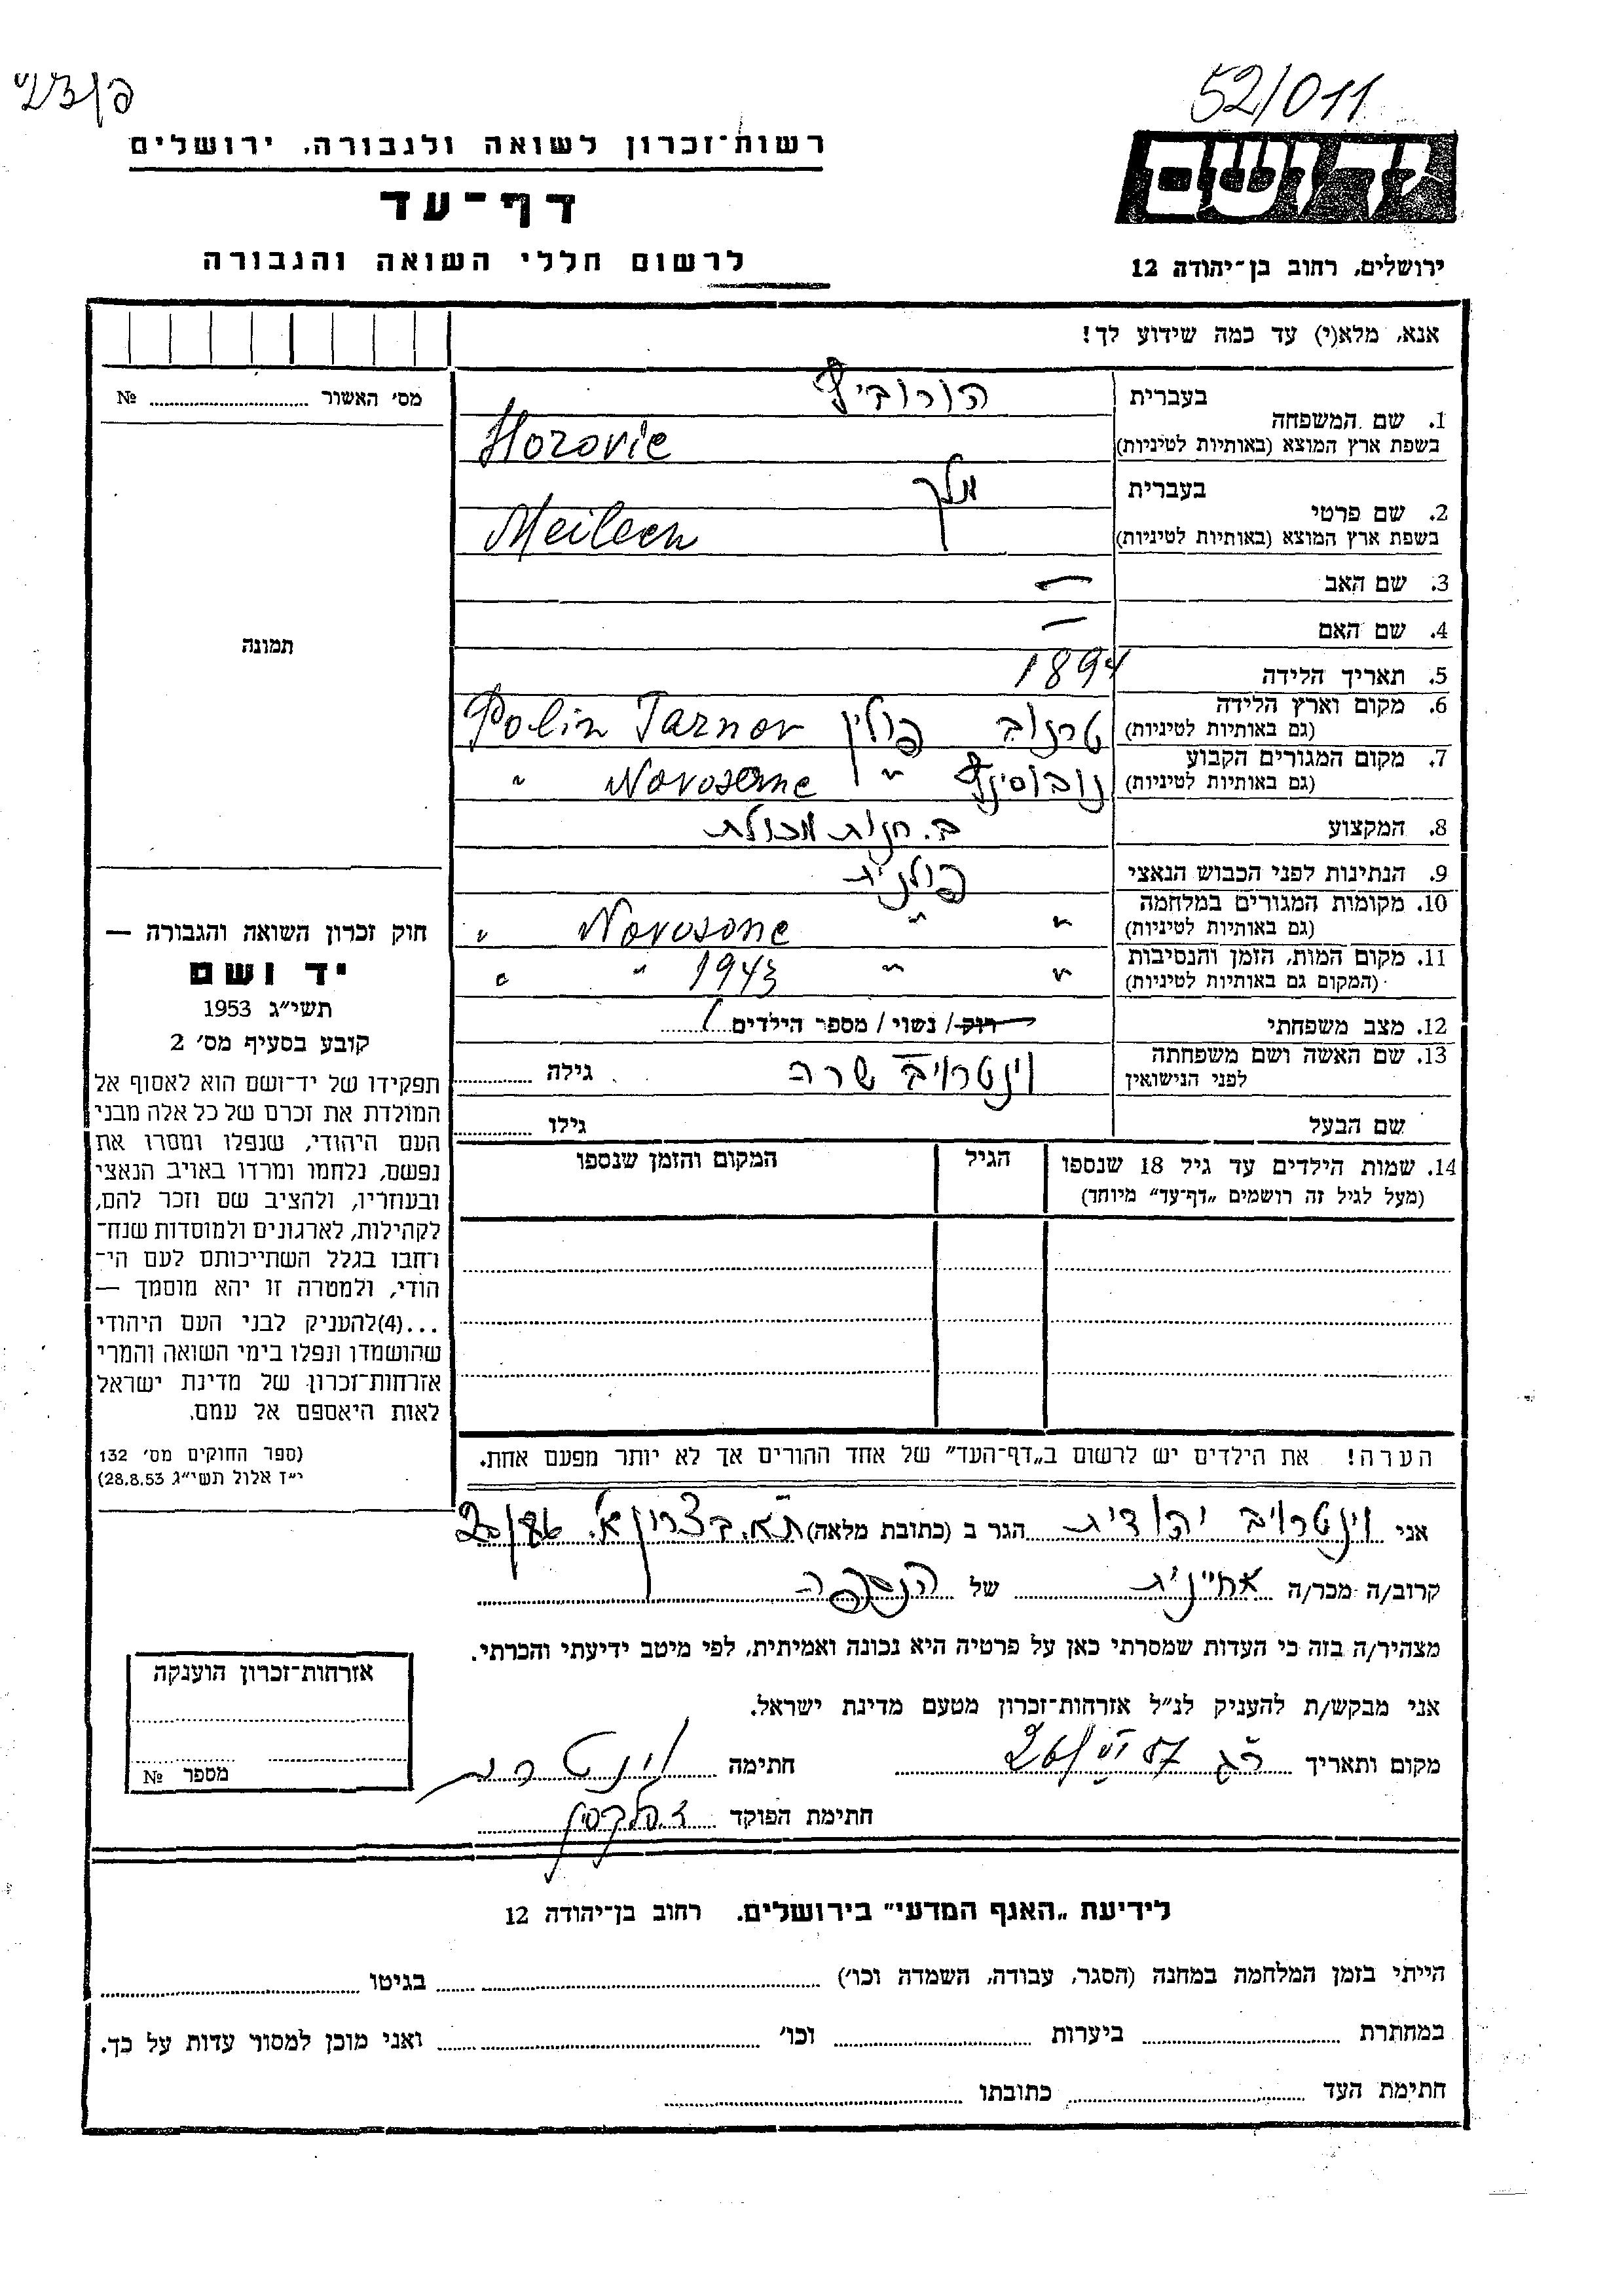 52/011
רשות־זכרון לשואה ולגבורה, ירושלים
יד ושם
דף־עד
לרשום חללי השואה והגבורה
ירושלים, רחוב בן־יהודה 12
אנא, מלא(י) עד כמה שידוע לך!
מס׳ האשור № ........
1. שם המשפחה בעברית הורוביץ
בשפת ארץ המוצא (באותיות לטיניות) Horovic
2. שם פרטי בעברית מלך
בשפת ארץ המוצא (באותיות לטיניות) Meilech
3. שם האב —
4. שם האם —
תמונה
5. תאריך הלידה 1894
6. מקום וארץ הלידה (גם באותיות לטיניות) טרנוב פולין Polin Tarnov
7. מקום המגורים הקבוע (גם באותיות לטיניות) " "
8. המקצוע ב. חנות מכולת
9. הנתינות לפני הכבוש הנאצי פולנית
10. מקומות המגורים במלחמה (גם באותיות לטיניות) " " "
11. מקום המות, הזמן והנסיבות (המקום גם באותיות לטיניות) " " 1943 " "
12. מצב משפחתי רוק / נשוי / מספר הילדים 1
13. שם האשה ושם משפחתה לפני הנישואין וינטרויב שרה גילה ........
שם הבעל גילו ........
14. שמות הילדים עד גיל 18 שנספו (מעל לגיל זה רושמים „דף־עד״ מיוחד) הגיל המקום והזמן שנספו
חוק זכרון השואה והגבורה —
יד ושם
תשי״ג 1953
קובע בסעיף מס׳ 2
תפקידו של יד־ושם הוא לאסוף אל
המולדת את זכרם של כל אלה מבני
העם היהודי, שנפלו ומסרו את
נפשם, נלחמו ומרדו באויב הנאצי
ובעוזריו, ולהציב שם וזכר להם,
לקהילות, לארגונים ולמוסדות שנח־
רבו בגלל השתייכותם לעם הי־
הודי, ולמטרה זו יהא מוסמך —
...(4)להעניק לבני העם היהודי
שהושמדו ונפלו בימי השואה והמרי
אזרחות־זכרון של מדינת ישראל
לאות היאספם אל עמם.
(ספר החוקים מס׳ 132
י״ז אלול תשי״ג 28.8.53)
הערה! את הילדים יש לרשום ב„דף־העד״ של אחד ההורים אך לא יותר מפעם אחת.
אני וינטרויב יהודית הגר ב (כתובת מלאה) ת״א.
קרוב/ה מכר/ה אחיינית של הנספה
מצהיר/ה בזה כי העדות שמסרתי כאן על פרטיה היא נכונה ואמיתית, לפי מיטב ידיעתי והכרתי.
אני מבקש/ת להעניק לנ״ל אזרחות־זכרון מטעם מדינת ישראל.
מקום ותאריך ר״ג 26/VI 57 חתימה
חתימת הפוקד
אזרחות־זכרון הוענקה
מספר №
לידיעת „האגף המדעי״ בירושלים. רחוב בן־יהודה 12
הייתי בזמן המלחמה במחנה (הסגר, עבודה, השמדה וכו׳) ........ בגיטו ........
במחתרת ........ ביערות ........ וכו׳ ........ ואני מוכן למסור עדות על כך.
חתימת העד ........ כתובתו ........